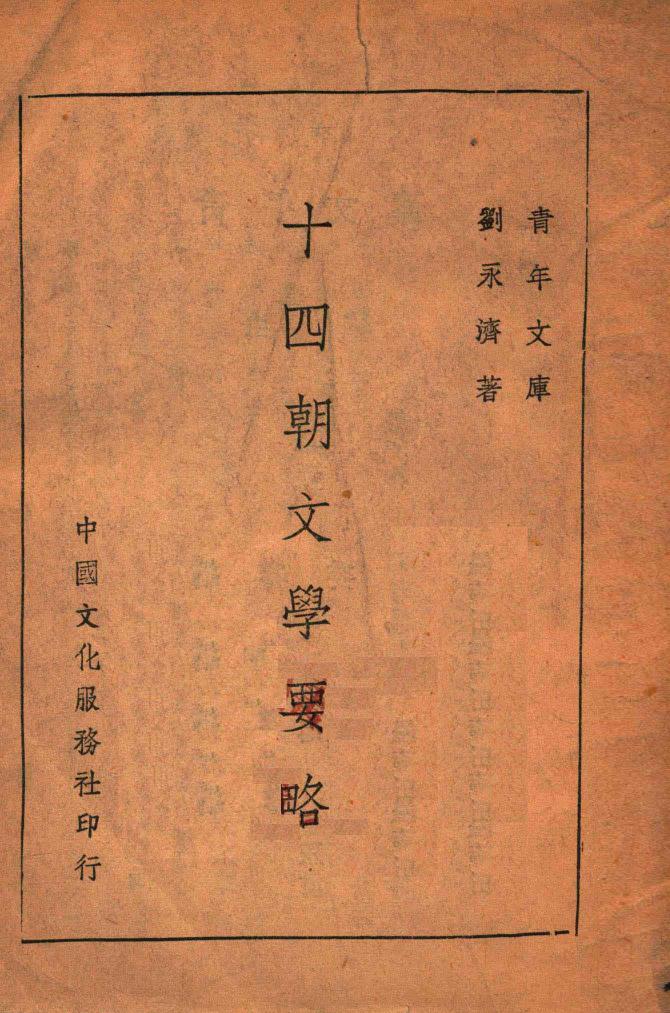 青年文庫
劉永濟著
十四朝文學要略
中國文化服務社印行